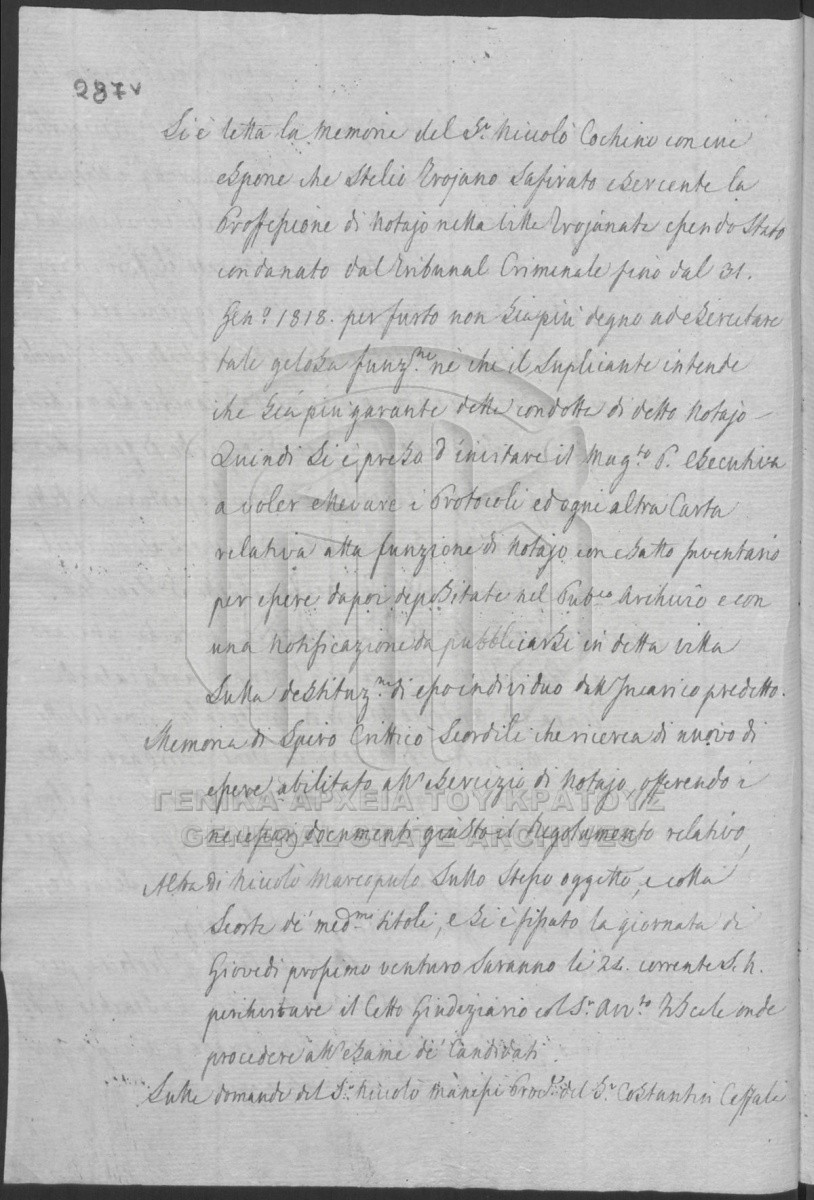 287v
Si è letta la memoria del Sr. Niccolò Cochino con cui
espone che Stelio Trojano Safirato esercente la
Proffessione di Notajo nella Villa Trojanate essendo stato
condanato dal Tribunal Criminale fino dal 31.
Gen.o 1818. per furto non sia più degno ad esercitare
tale gelosa funz.ne nè che il Suplicante intende
che sia più garante della condotta di detto Notajo
Quindi Si è preso d'incitare il Mag.to P. Esecutiva
a voler ellevare i Protocoli ed ogni altra Carta
relativa alla funzione di Notajo con esatto Inventario
per essere dapoi depositate nel Pub.co Archivio e con
una Notificazione da pubblicarsi in detta villa
Sulla destituz.ne di esso individuo dall'Incarico predetto.
Memoria di Spiro Crittico Scordili che ricerca di nuovo di
essere abilitato all'esercizio di Notajo, offerendo i
necessarj documenti giusto il Regolamento relativo,
Altra di Niccolò Marcopulo Sullo Stesso oggetto, e colla
Scorta de' med.mi titoli, e si è fissato la giornata di
Giovedì prossimo venturo Saranno li 24. corrente S. N.
per invitare il Cetto Giudiziario col Sr. Avv.to Fiscale onde
procedere all'esame de' Candidati.
Sulle domande del Sr. Niccolò Manessi Proc.r del Sr. Costantin Ceffala
ΓΕΝΙΚΑ ΑΡΧΕΙΑ ΤΟΥ ΚΡΑΤΟΥΣ
GENERAL STATE ARCHIVES